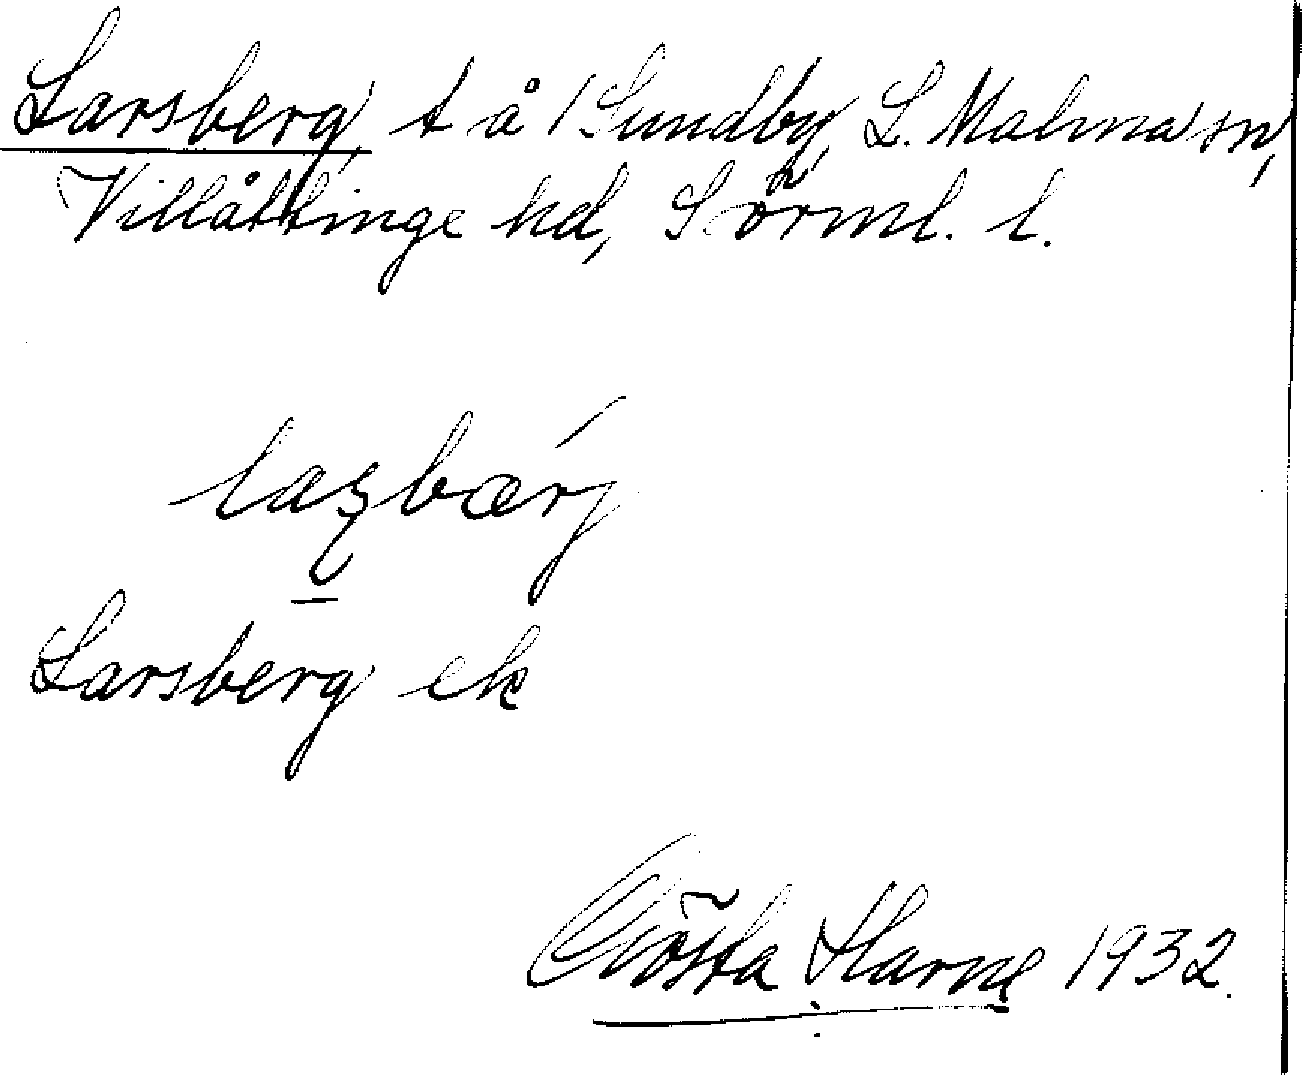 Larsberg, t å / Sundby, L. Malma sn,
Villåttinge hd, Sörml. l.
laʂbærj
Larsberg ek
Gösta Harne 1932.